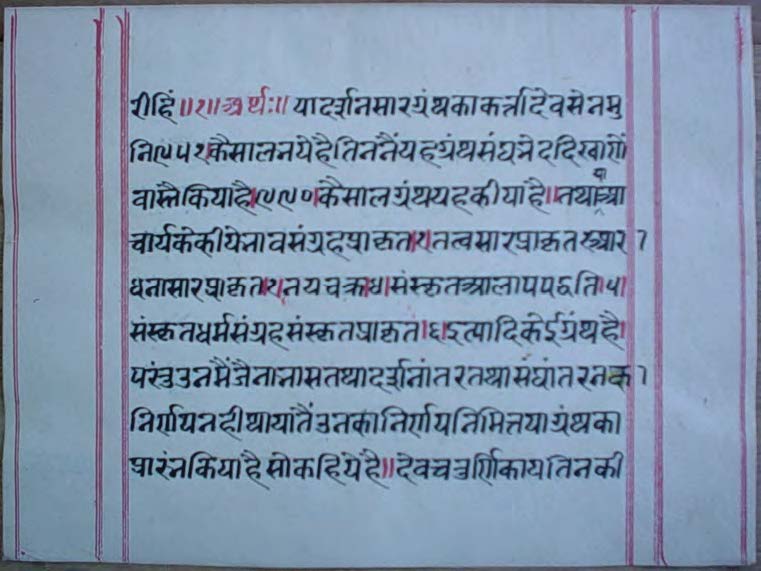 रीहिं॥१॥अर्थः॥ यादर्शनसारग्रंथकाकर्त्तादेवसेनमु
नि९५१कैसालनयेहैतिननैंयहग्रंथसंघनेददिखाणें
वास्तैकियाहै।९९०।कैसालग्रंथयहकीयाहै॥तथायाआ
चार्यकेकीयेनावसंग्रहप्राकृत।१।तत्वसारप्राकृत२आर
धनासारप्राकृत।३।नयचक्र।४।संस्कृतआलापपद्धति।५।
संस्कृतधर्मसंग्रहसंस्कृतप्राकृत।६।इत्यादिकेईग्रंथहै।
परंतुउनमैंजैनानासतथादर्शनांतरतथासंघांतरनक
निर्णयनहीथायातैंउनकानिर्णयनिमित्तयाग्रंथका
प्रारंनकियाहैसोकहियेहै॥देवचतुर्णिकायतिनकी